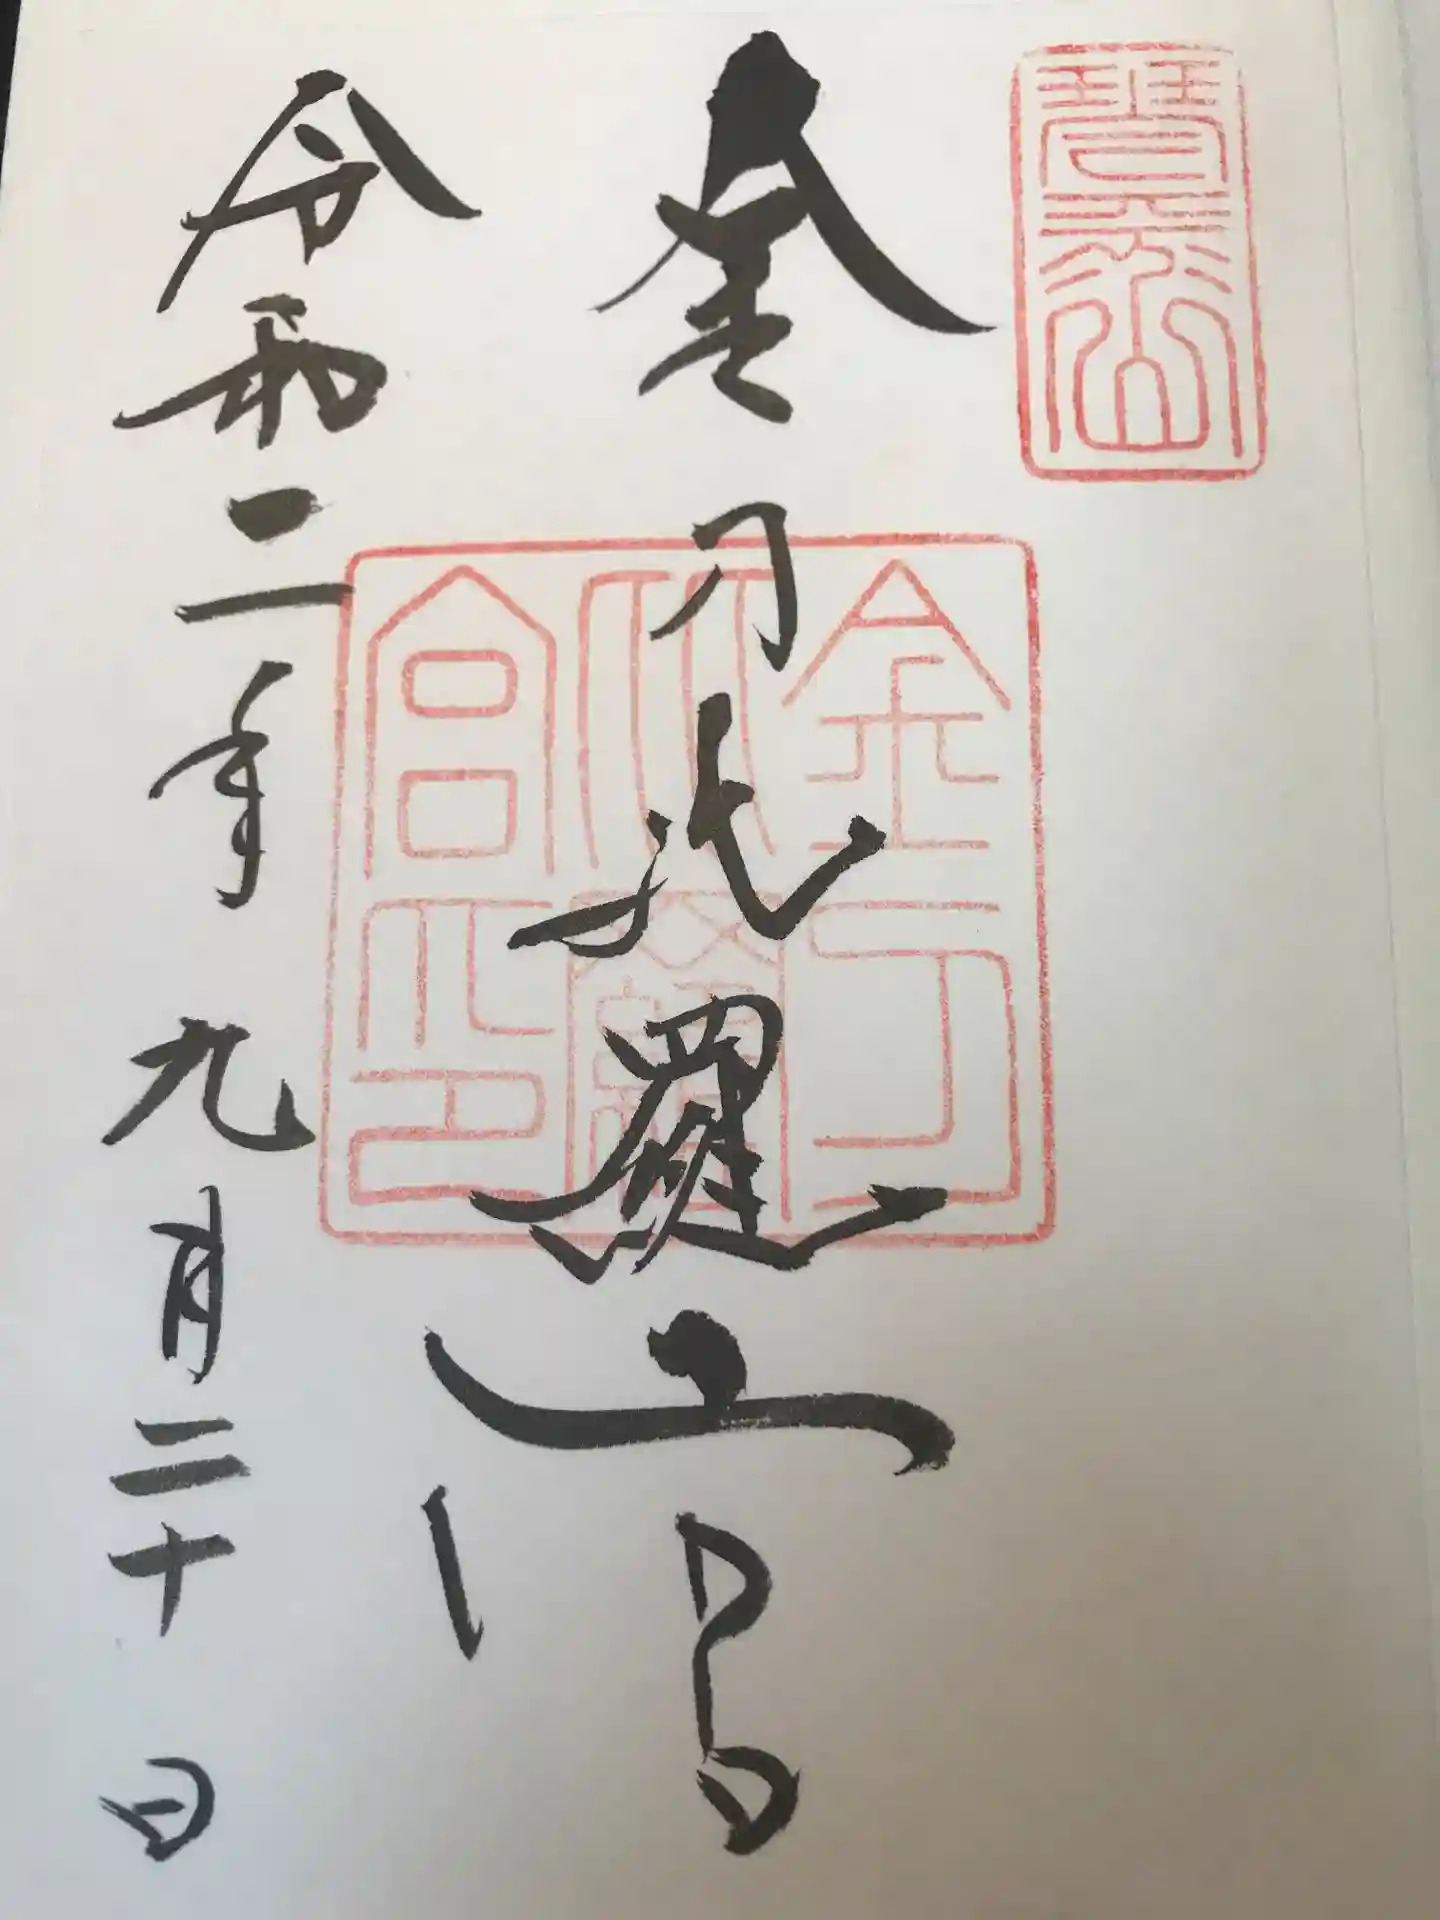 琴平山
金刀比羅宮
金刀比羅宮印
令和二年九月二十日